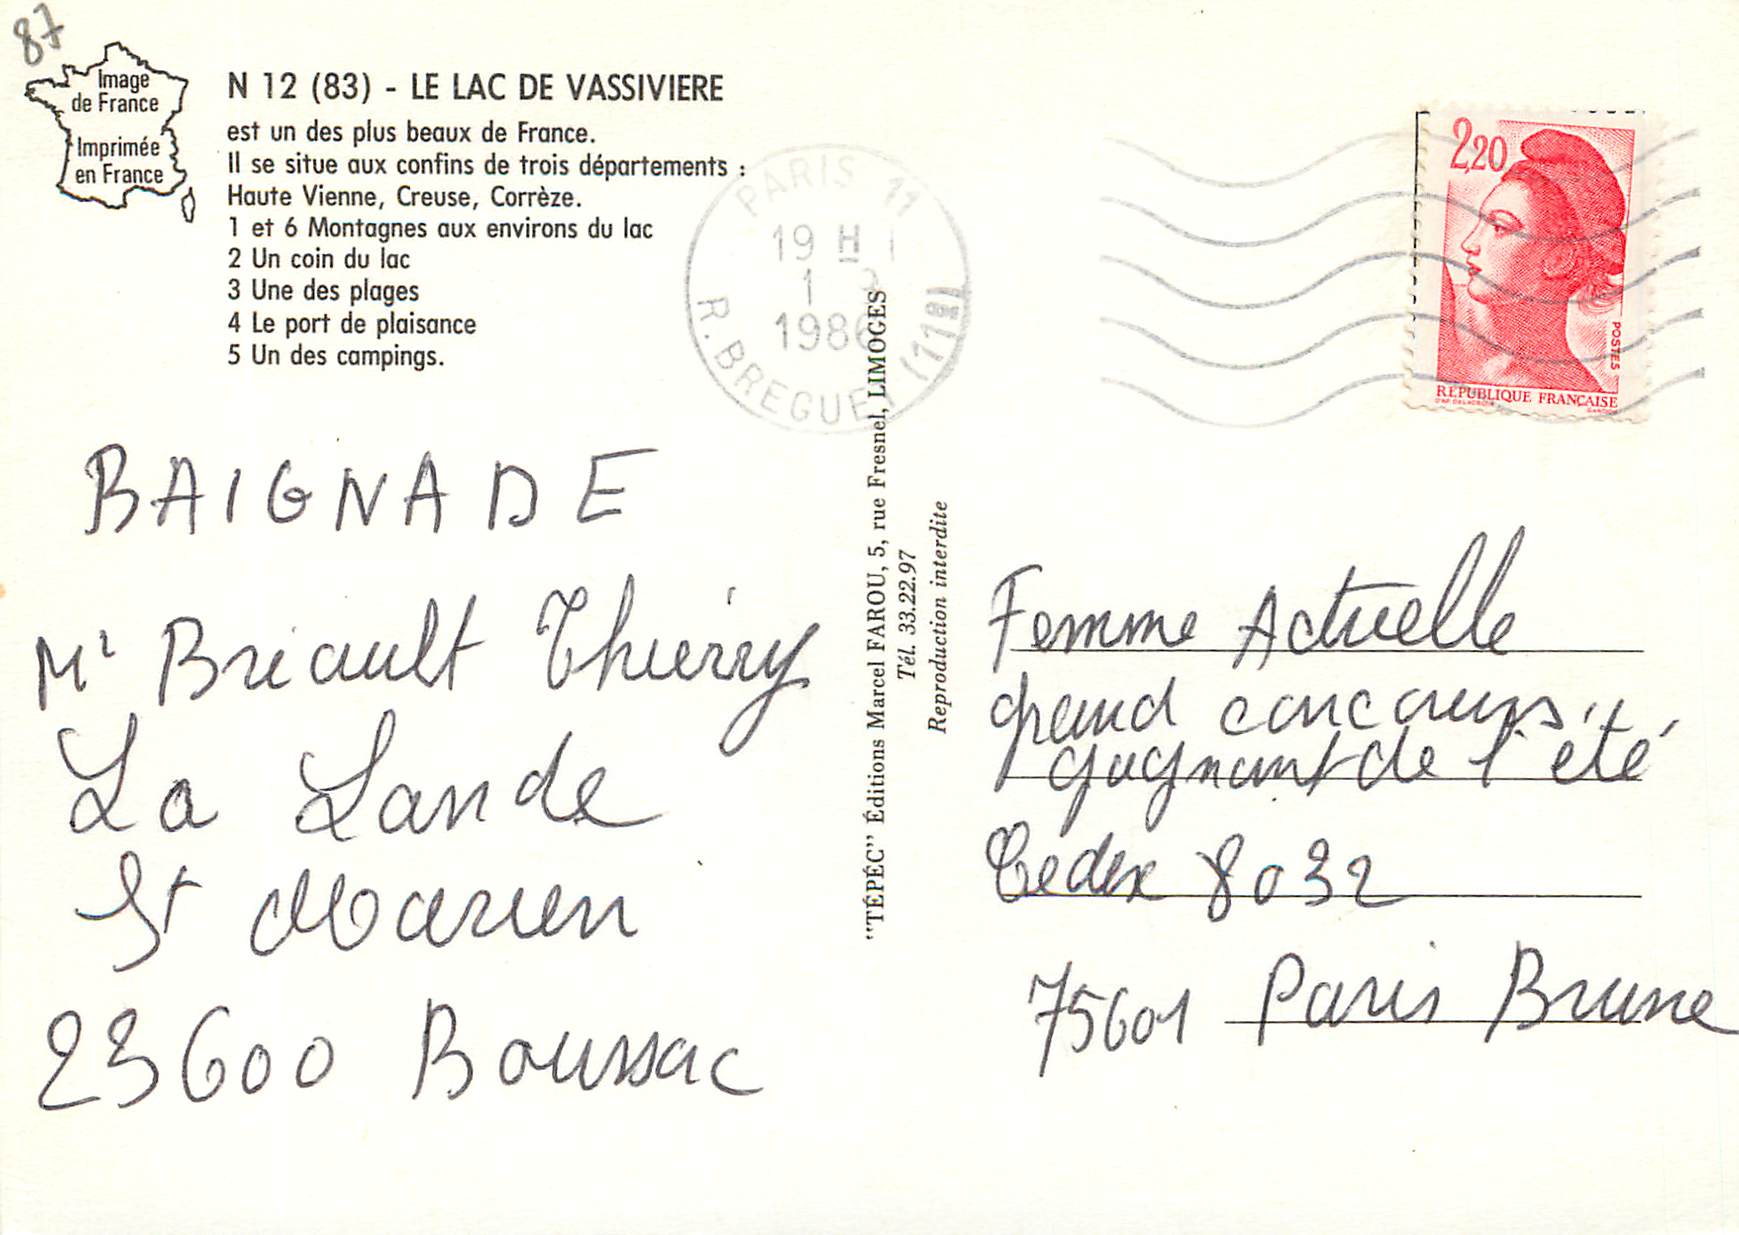 87
Image
de France
Imprimée
en France
N 12 (83) - LE LAC DE VASSIVIERE
est un des plus beaux de France.
Il se situe aux confins de trois départements :
Haute Vienne, Creuse, Corrèze.
1 et 6 Montagnes aux environs du lac
2 Un coin du lac
3 Une des plages
4 Le port de plaisance
5 Un des campings.
PARIS 11
19 H
1
1986
R. BREGUET (11E)
2,20
POSTES
REPUBLIQUE FRANÇAISE
BAIGNADE
Mr Briault Thierry
La Lande
St Marien
23600 Boussac
"TÉPÉC" Éditions Marcel FAROU, 5, rue Fresnel, LIMOGES
Tél. 33.22.97
Reproduction interdite
Femme Actuelle
grand concours
gagnant de l'été
Cedex 8032
75601 Paris Brune